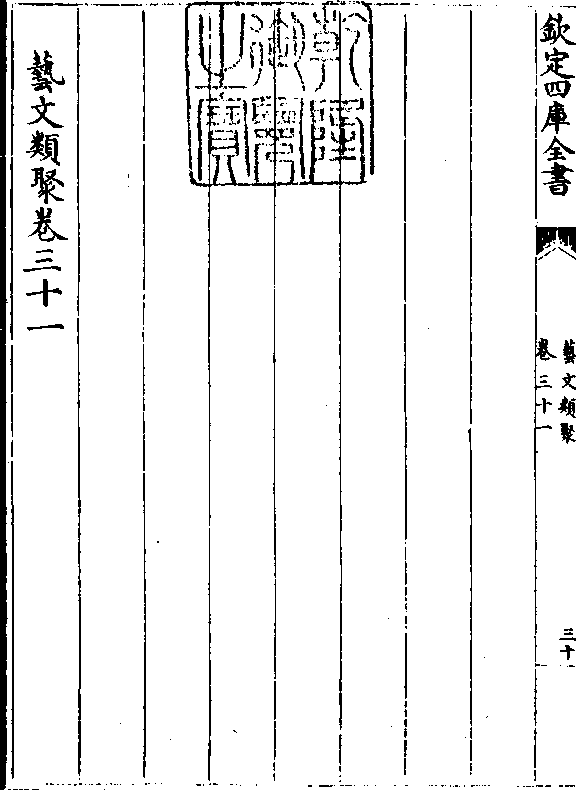 欽定四庫全書
藝文類聚
卷三十一
三十
乾隆御覽之寶
藝文類聚卷三十一